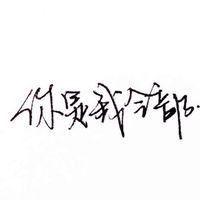 你是我全部.